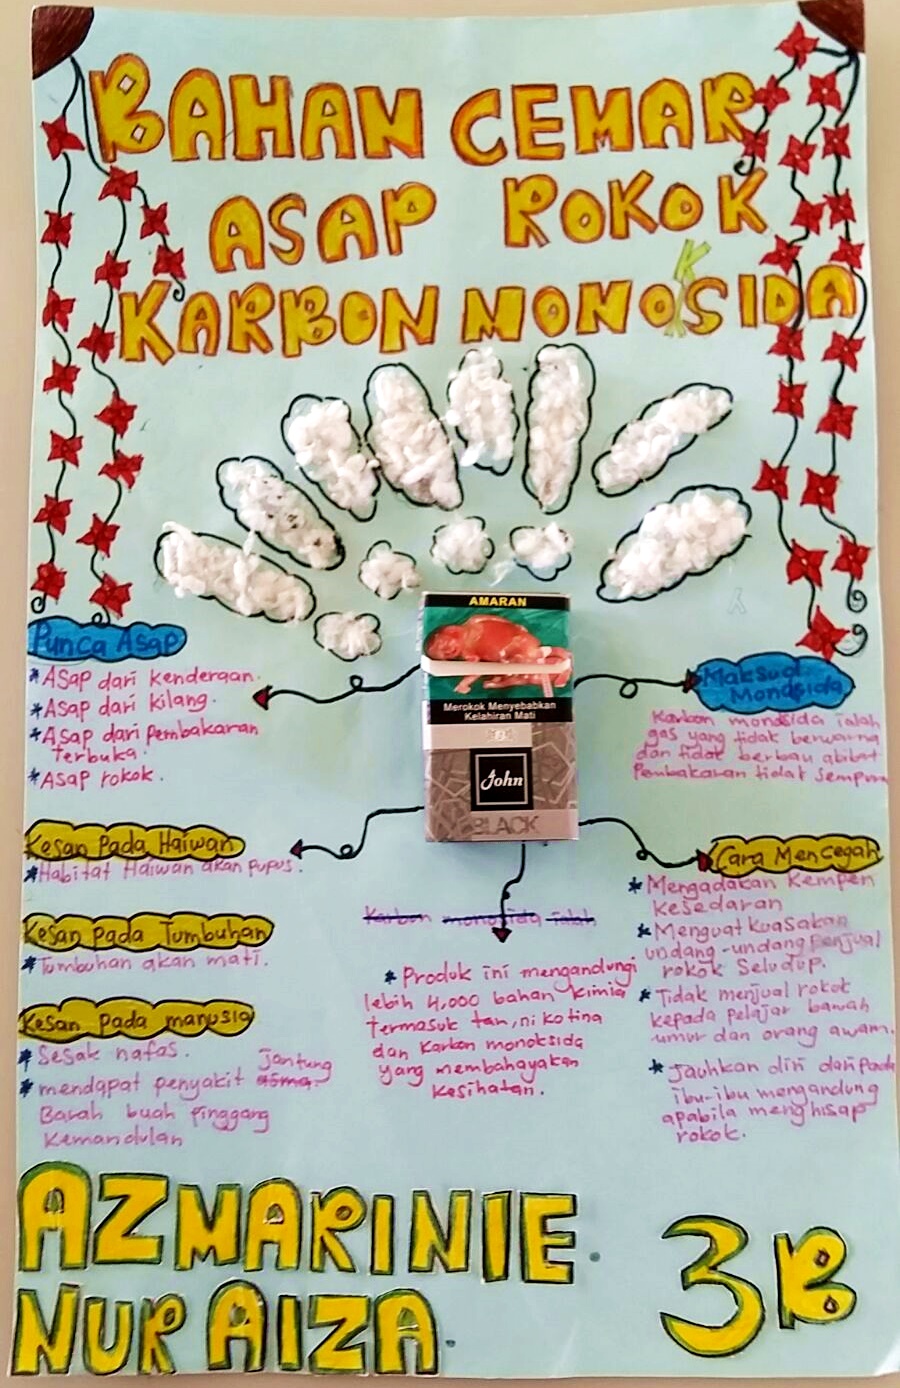 BAHAN CEMAR
ASAP ROKOK
KARBON MONOKSIDA
AMARAN
Merokok Menyebabkan
Kelahiran Mati
John
BLACK
Punca Asap
*Asap dari kenderaan.
*Asap dari kilang.
*Asap dari Pembakaran
Terbuka.
*Asap rokok.
Kesan Pada Haiwan
*Habitat Haiwan akan pupus.
Kesan Pada Tumbuhan
*Tumbuhan akan mati.
Kesan pada manusia
*Sesak nafas.
jantung
*mendapat penyakit asma.
Barah buah pinggang
Kemandulan
Karbon monosida ialah
*Produk ini mengandungi
lebih 4,000 bahan kimia
termasuk tan, nikotina
dan Karbon monoksida
yang membahayakan
kesihatan.
Maksud
Monosida
Karbon monosida ialah
gas yang tidak berwarna
dan tidak berbau akibat
Pembakaran tidak Sempurna
Cara Mencegah
*Mengadakan Kempen
kesedaran
*Menguatkuasakan
undang-undang Penjual
rokok Seludup.
*Tidak menjual rokok
kepada pelajar bawah
umur dan orang awam.
*Jauhkan diri daripada
ibu-ibu mengandung
apabila menghisap
rokok.
AZMARINIE.
NUR AIZA.
3B